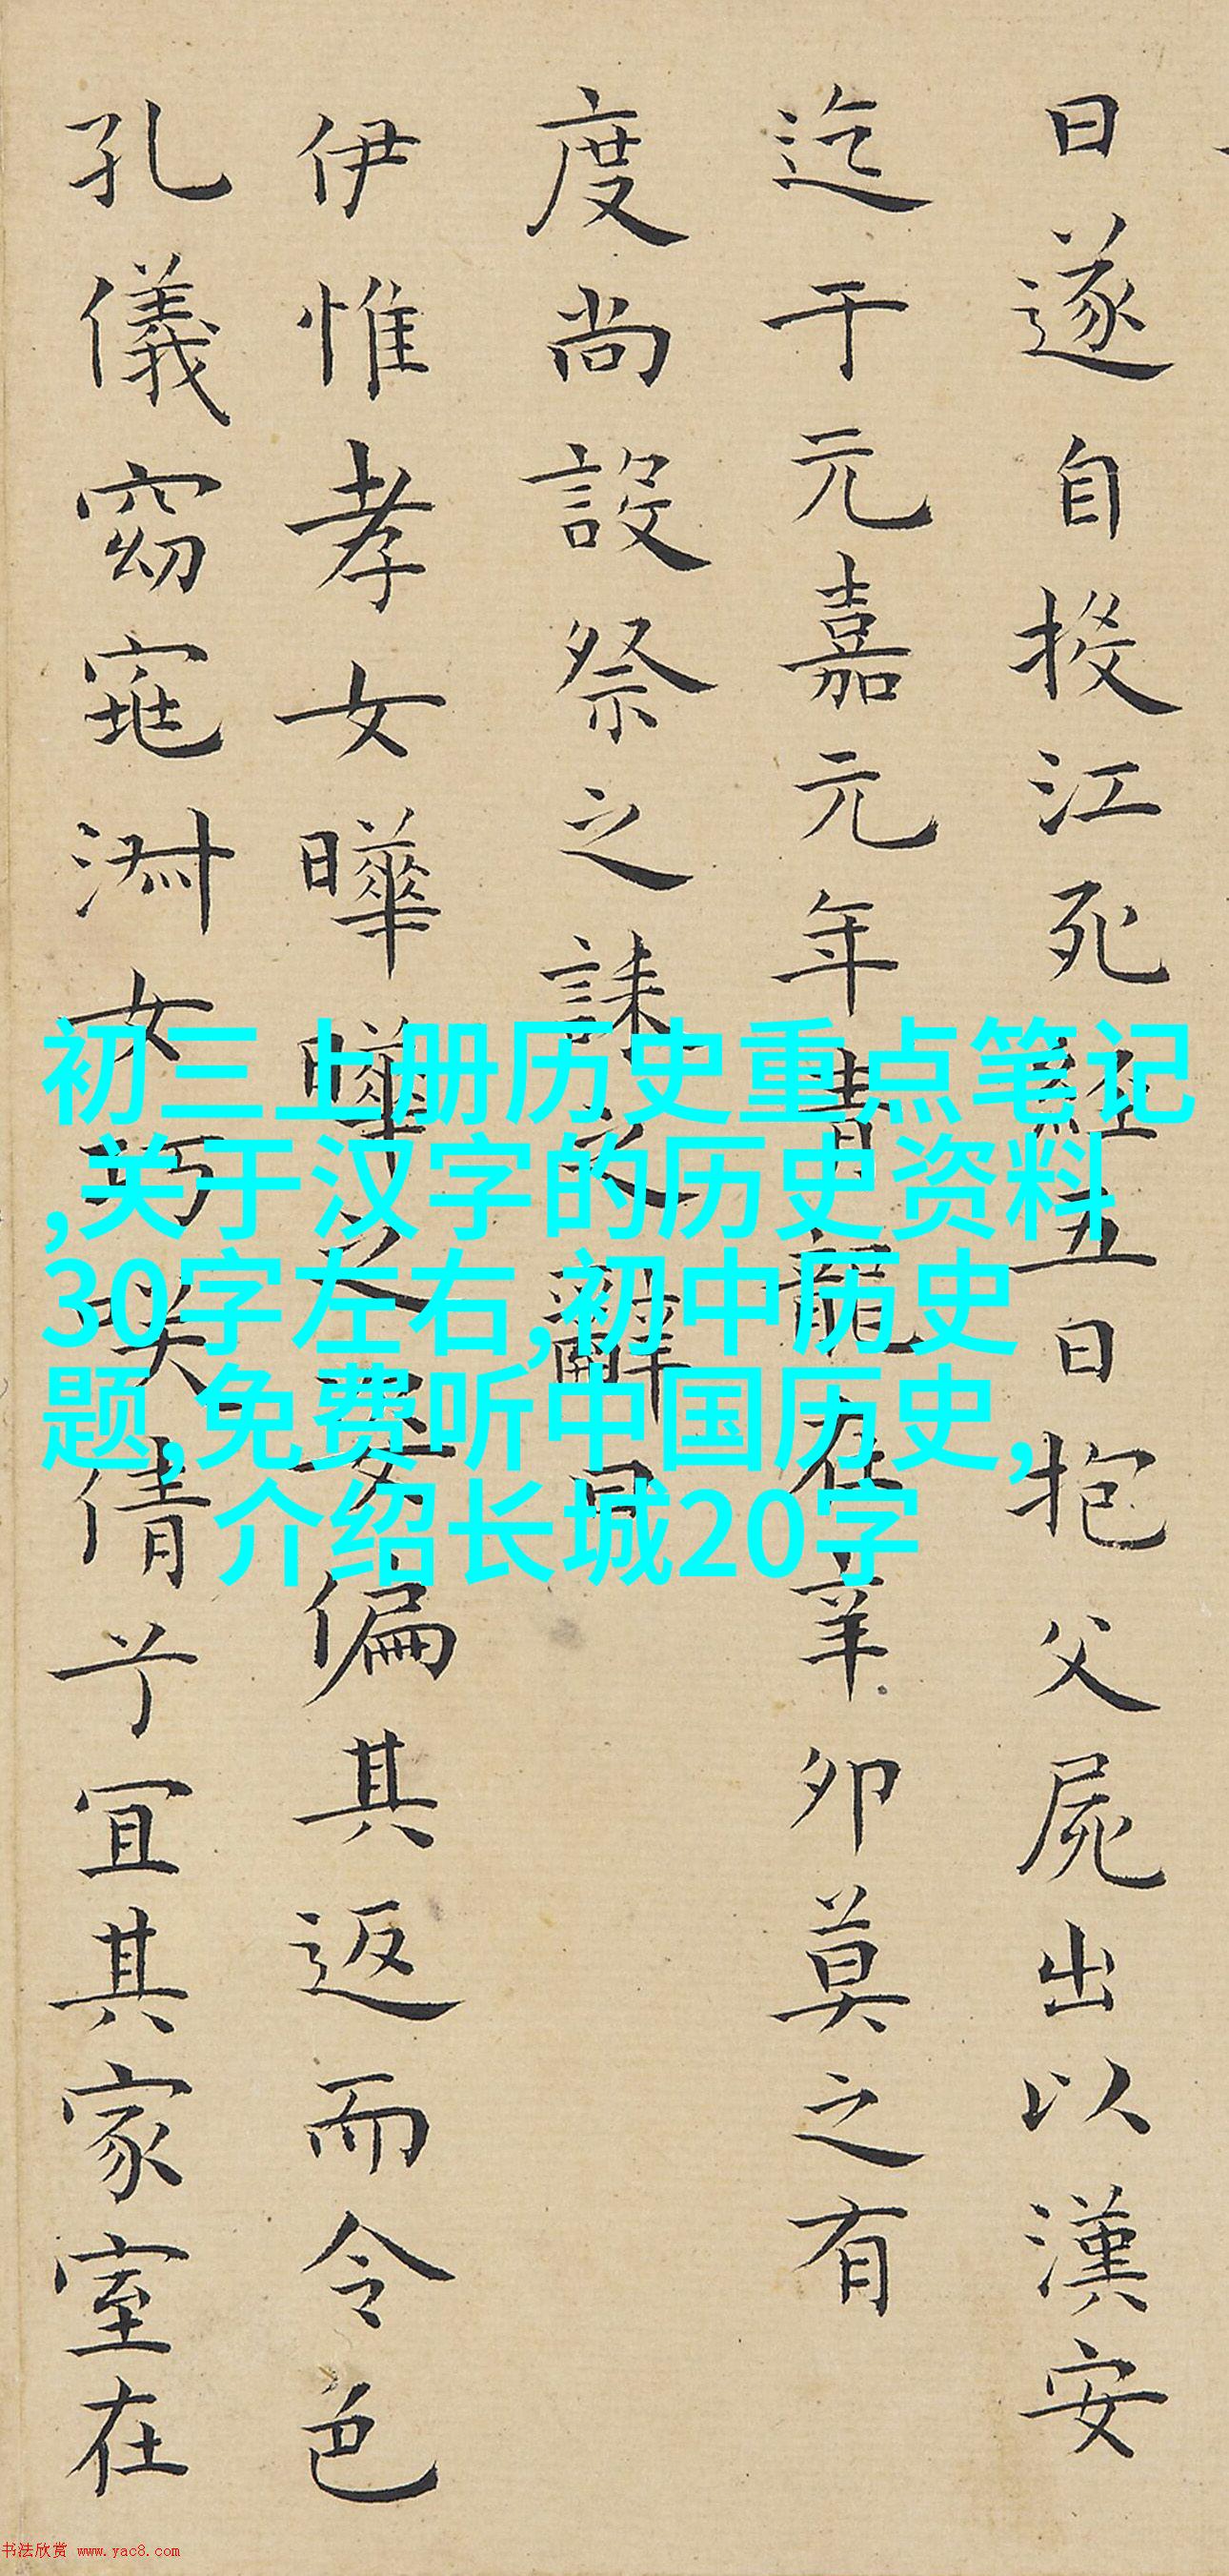 日遂自投江死經五日抱父屍出以漢安
迄于元嘉元年青龍在辛卯莫之有
度尚設祭之誄之辭曰
伊惟孝女曄曄之姿偏其返而令色
孔儀窈窕淑女巧笑倩兮宜其家室在
初三上册历史重点笔记
,关于汉字的历史资料
30字左右,初中历史
题,免费听中国历史,
介绍长城20字
书法欣赏 www.yac8.com